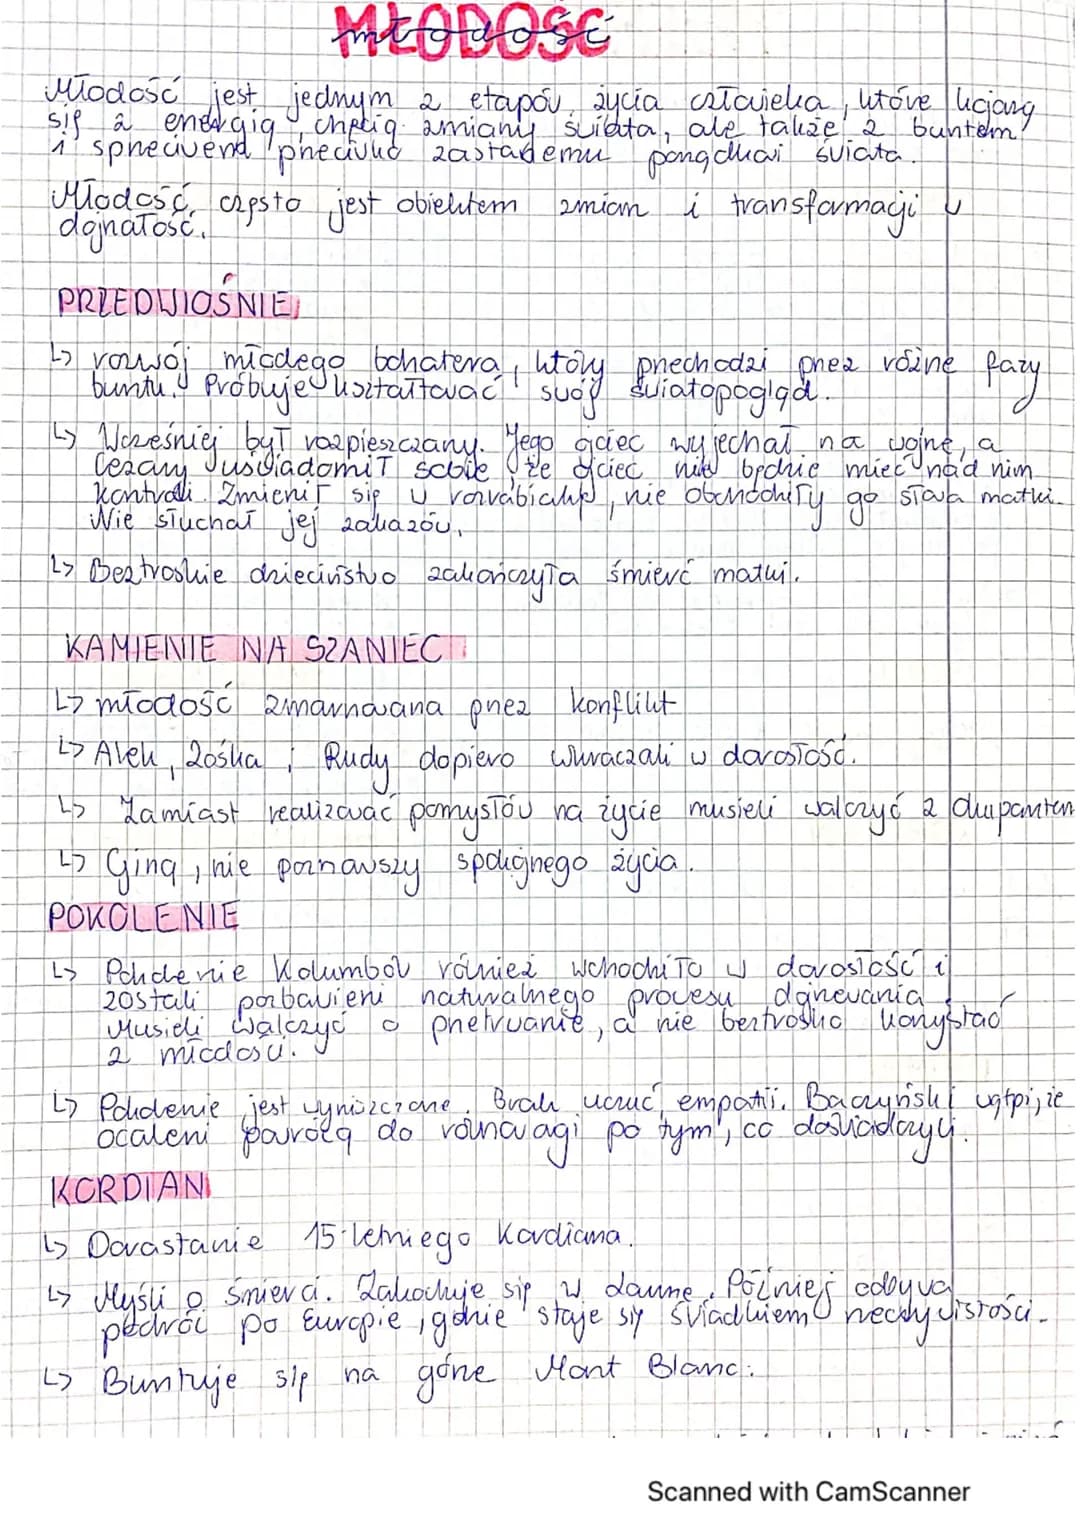 MŁODOŚĆ
Młodość jest jednym z etapów życia człowieka, które kojarzą
się z energią, chęcią zmiany świata, ale także z buntem
i sprzeciwem przeciwko zastanemu porządkowi świata.
Młodość często jest obiektem zmian i transformacji w
dojrzałość.
PRZEDWIOŚNIE
↳ rozwój młodego bohatera, który przechodzi przez różne fazy
buntu. Próbuje kształtować swój światopogląd.
↳ Wcześniej był rozpieszczany. Jego ojciec wyjechał na wojnę, a
Cezary uświadomił sobie że ojciec nie będzie mieć nad nim
kontroli. Zmienił się w rozrabiakę, nie obchodziły go słowa matki.
Nie słuchał jej zakazów.
↳ Beztroskie dzieciństwo zakończyła śmierć matki.
KAMIENIE NA SZANIEC
↳ młodość zmarnowana przez konflikt
↳ Alek, Zośka i Rudy dopiero wkraczali w dorosłość.
↳ Zamiast realizować pomysłów na życie musieli walczyć z okupantem
↳ Giną, nie poznawszy spokojnego życia.
POKOLENIE
↳ Pokolenie Kolumbów również wchodziło w dorosłość i
zostali pozbawieni naturalnego procesu dojrzewania.
Musieli walczyć o przetrwanie, a nie beztrosko korzystać
z młodości.
↳ Pokolenie jest wyniszczone. Brak uczuć, empatii. Baczyński wątpi, że
ocaleni powrócą do równowagi po tym, co doświadczyli.
KORDIAN
↳ Dorastanie 15-letniego Kordiana.
↳ Myśli o śmierci. Zakochuje się w damie. Później odbywa
podróż po Europie, gdzie staje się świadkiem rzeczywistości.
↳ Buntuje się na górze Mont Blanc.
Scanned with CamScanner